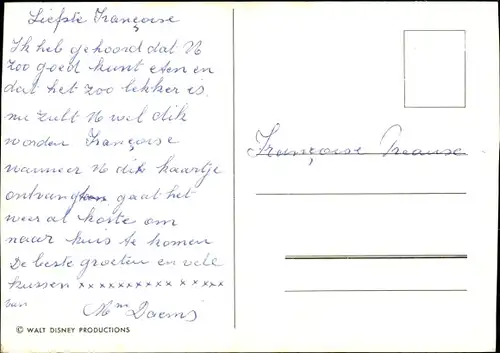 Liefste Françoise
Ik heb gehoord dat U
zoo goed kunt eten en
dat het zoo lekker is.
nu zult U wel dik
worden Françoise
wanneer U dit kaartje
ontvang gaat het
weer al korte om
naar huis te komen
De beste groeten en vele
kussen xxxxxxxxxxxx
van Mm Daems
Françoise
© WALT DISNEY PRODUCTIONS